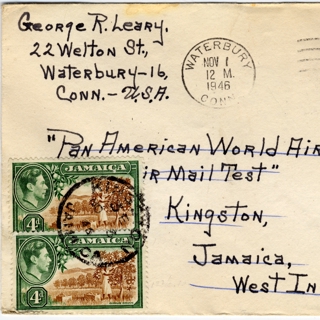 George R. Leary,
22 Welton St.,
Waterbury-16,
Conn.-U.S.A.
WATERBURY
NOV 1
12 M.
1946
CONN.
"Pan American World Air
ir Mail Test"
Kingston,
Jamaica,
West In
JAMAICA
4d
JAMAICA
4d